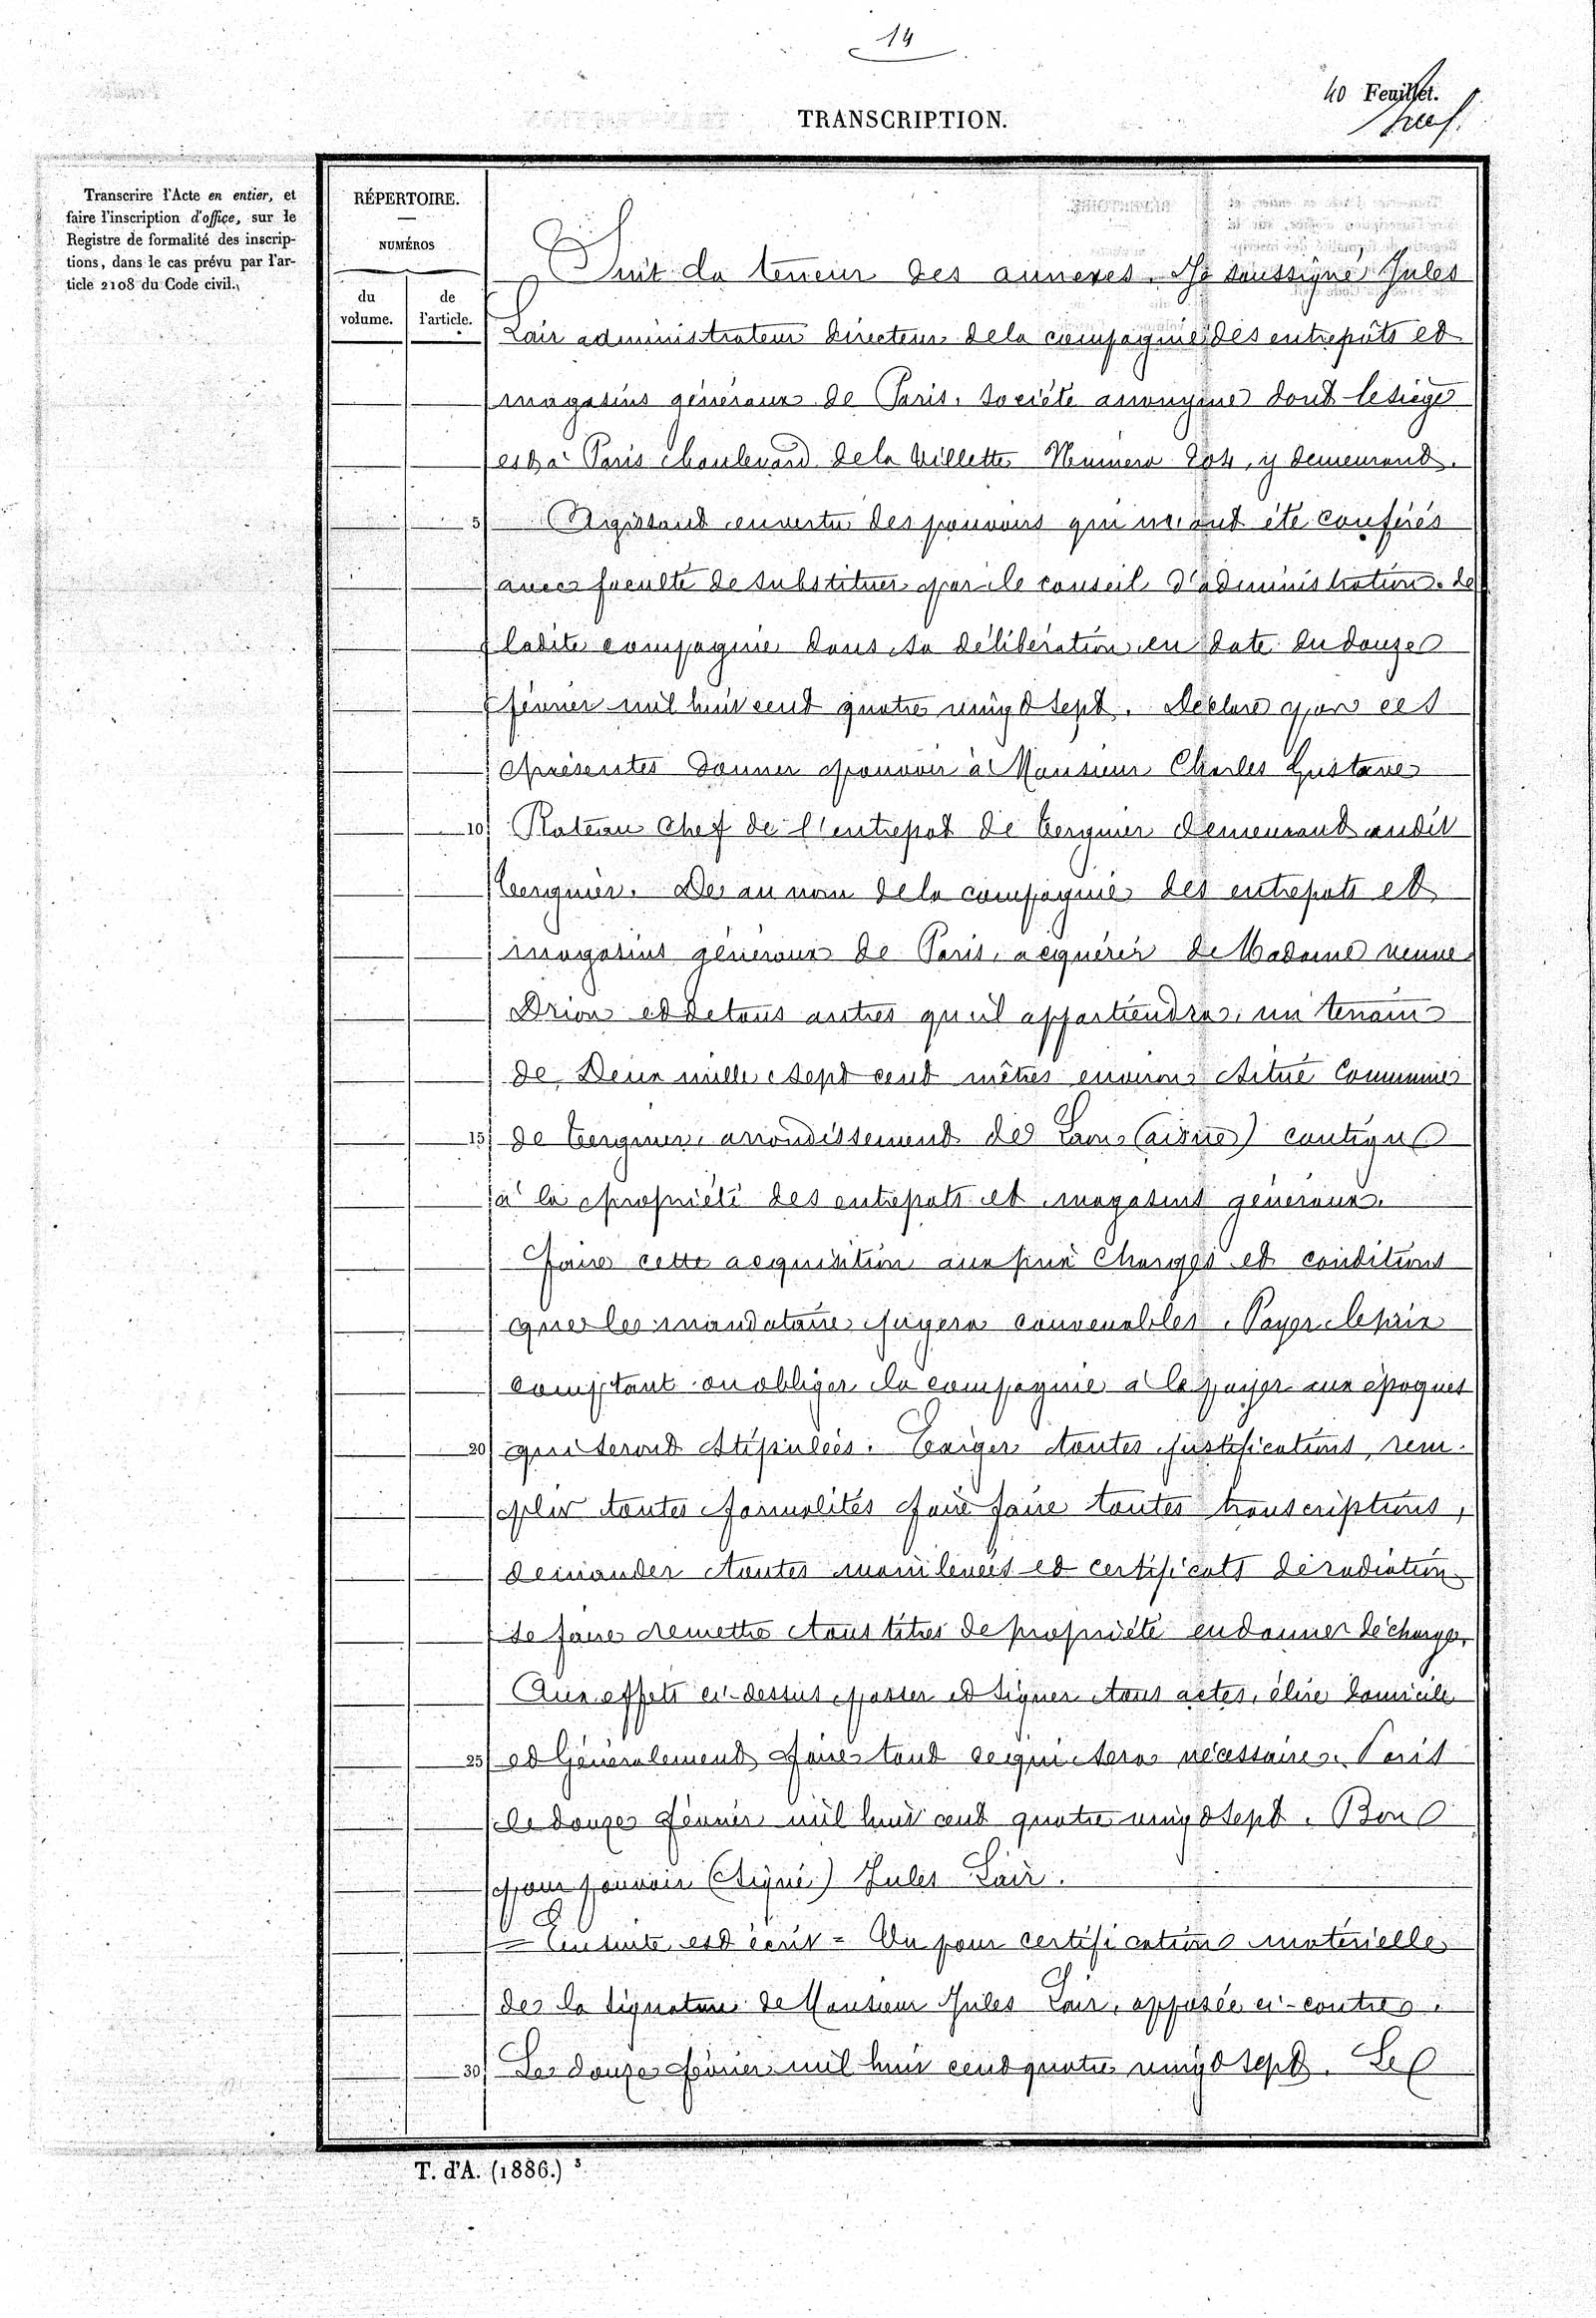 14
40 Feuillet.
TRANSCRIPTION.
Transcrire l'Acte en entier, et
faire l'inscription d'office, sur le
Registre de formalité des inscrip-
tions, dans le cas prévu par l'ar-
ticle 2108 du Code civil.
RÉPERTOIRE.
NUMÉROS
du
volume.
de
l'article.
Suit la teneur des annexes. Je soussigné Jules
Lair administrateur directeur de la compagnie des entrepôts et
magasins généraux de Paris, société anonyme dont le siège
est à Paris boulevard de la Villette Numéro 204, y demeurant.
5 Agissant en vertu des pouvoirs qui m'ont été conférés
avec faculté de substituer par le conseil d'administration de
ladite compagnie dans sa délibération en date du douze
février mil huit cent quatre vingt sept. Déclare par ces
présentes donner pouvoir à Monsieur Charles Gustave
10 Rateau chef de l'entrepot de Tergnier demeurant audit
Tergnier. De au nom de la compagnie des entrepots et
magasins généraux de Paris, acquérir de Madame veuve
Drion et de tous autres qu'il appartiendra, un terrain
de Deux mille sept cent mètres environ situé Commune
15 de Tergnier, arrondissement de Laon (aisne) contigu
à la propriété des entrepots et magasins généraux.
Faire cette acquisition aux prix charges et conditions
que le mandataire jugera convenables. Payer le prix
comptant ou obliger la compagnie à le payer aux époques
20 qui seront stipulées. Exiger toutes justifications, rem-
plir toutes formalités faire faire toutes transcriptions,
demander toutes mainlevées et certificats de radiation
se faire remettre tous titres de propriété en donner décharge,
Aux effets ci-dessus passer et signer tous actes, élire domicile
25 et Généralement faire tout ce qui sera nécessaire. Paris
le douze février mil huit cent quatre vingt sept. Bon
pour pouvoir (signé) Jules Lair.
= Ensuite est écrit = Vu pour certification matérielle
de la signature de Monsieur Jules Lair, apposée ci-contre.
30 Le douze février mil huit cent quatre vingt sept. Le
T. d'A. (1886.) 3